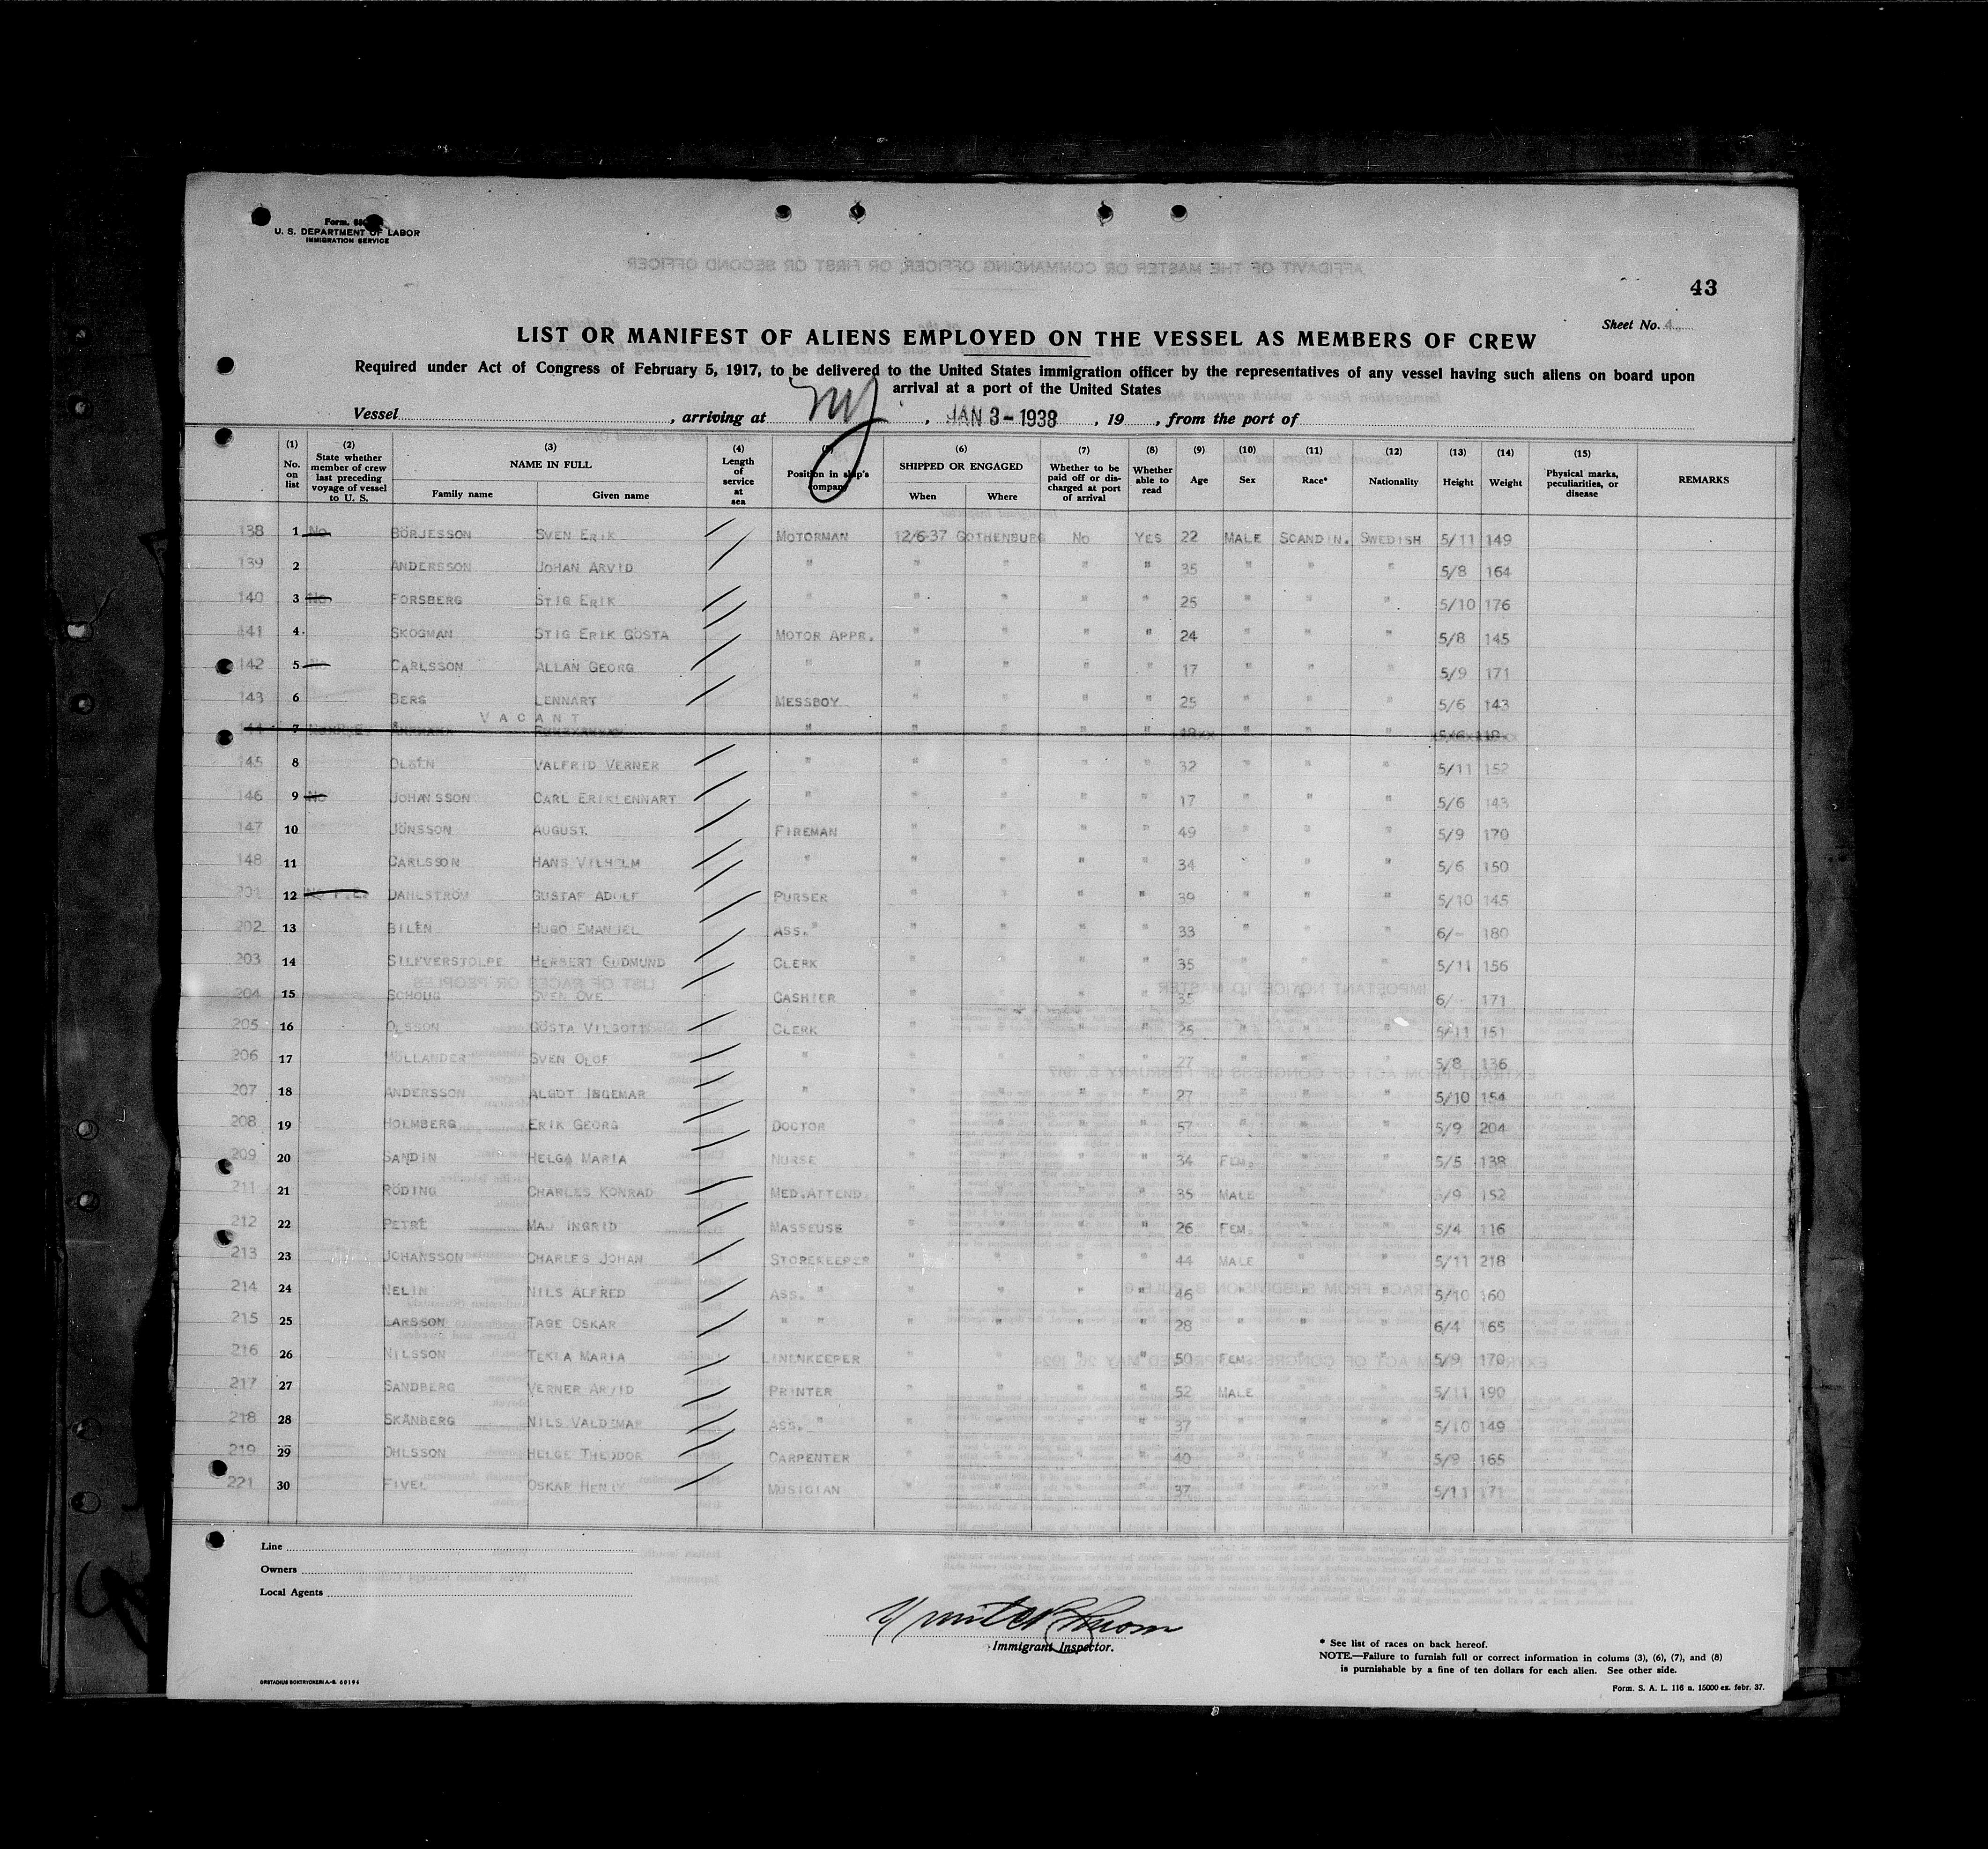 Form. 68
U. S. DEPARTMENT OF LABOR
IMMIGRATION SERVICE
AFFIDAVIT OF THE MASTER OR COMMANDING OFFICER, OR FIRST OR SECOND OFFICER
43
Sheet No. 4
LIST OR MANIFEST OF ALIENS EMPLOYED ON THE VESSEL AS MEMBERS OF CREW
Required under Act of Congress of February 5, 1917, to be delivered to the United States immigration officer by the representatives of any vessel having such aliens on board upon
arrival at a port of the United States
Vessel , arriving at NY , JAN 3 - 1938 , 19 , from the port of
(1) No. on list (2) State whether member of crew last preceding voyage of vessel to U. S. (3) NAME IN FULL Family name Given name (4) Length of service at sea (5) Position in ship's company (6) SHIPPED OR ENGAGED When Where (7) Whether to be paid off or discharged at port of arrival (8) Whether able to read (9) Age (10) Sex (11) Race* (12) Nationality (13) Height (14) Weight (15) Physical marks, peculiarities, or disease REMARKS
138 1 No BÖRJESSON SVEN ERIK MOTORMAN 12/6-37 GOTHENBURG No YES 22 MALE SCANDIN. SWEDISH 5/11 149
139 2 ANDERSSON JOHAN ARVID " " " " " 35 " " " 5/8 164
140 3 No FORSBERG STIG ERIK " " " " " 25 " " " 5/10 176
141 4 SKOGMAN STIG ERIK GÖSTA MOTOR APPR. " " " " 24 " " " 5/8 145
142 5 No CARLSSON ALLAN GEORG " " " " " 17 " " " 5/9 171
143 6 BERG LENNART MESSBOY " " " " 25 " " " 5/6 143
144 7 VACANT " " " " " " " "
145 8 OLSÉN VALFRID VERNER " " " " " 32 " " " 5/11 152
146 9 No JOHANSSON CARL ERIK LENNART " " " " " 17 " " " 5/6 143
147 10 JÖNSSON AUGUST FIREMAN " " " " 49 " " " 5/9 170
148 11 CARLSSON HANS VILHELM " " " " " 34 " " 5/6 150
201 12 No P.E. DAHLSTRÖM GUSTAF ADOLF PURSER " " " " 39 " " " 5/10 145
202 13 BILÉN HUGO EMANUEL ASS. " " " " " 33 " " " 6/- 180
203 14 SILFVERSTOLPE HERBERT GUDMUND CLERK " " " " 35 " " " 5/11 156
204 15 SCHOUG SVEN OVE CASHIER " " " " 35 " " " 6/- 171
205 16 OLSSON GÖSTA VILGOTT CLERK " " " " 25 " " " 5/11 151
206 17 MÖLLANDER SVEN OLOF " " " " " 27 " " " 5/8 136
207 18 ANDERSSON ALGOT INGEMAR " " " " " 27 " " " 5/10 154
208 19 HOLMBERG ERIK GEORG DOCTOR " " " " 57 " " " 5/9 204
209 20 SANDIN HELGA MARIA NURSE " " " " 34 FEM. " " 5/5 138
211 21 RÖDING CHARLES KONRAD MED.ATTEND. " " " " 35 MALE " " 5/9 152
212 22 PETRÉ MAJ INGRID MASSEUSE " " " " 26 FEM. " " 5/4 116
213 23 JOHANSSON CHARLES JOHAN STOREKEEPER " " " " 44 MALE " " 5/11 218
214 24 NELIN NILS ALFRED ASS. " " " " " 46 " " " 5/10 160
215 25 LARSSON TAGE OSKAR " " " " " " 28 " " " 6/4 165
216 26 NILSSON TEKLA MARIA LINENKEEPER " " " " 50 FEM. " " 5/9 170
217 27 SANDBERG VERNER ARVID PRINTER " " " " 52 MALE " " 5/11 190
218 28 SKÅNBERG NILS VALDEMAR ASS. " " " " " 37 " " " 5/10 149
219 29 OHLSSON HELGE THEODOR CARPENTER " " " " 40 " " " 5/9 165
221 30 FIVEL OSKAR HENLY MUSICIAN " " " " 37 " " " 5/11 171
Line
Owners
Local Agents
Immigrant Inspector.
* See list of races on back hereof.
NOTE.—Failure to furnish full or correct information in colums (3), (6), (7), and (8)
is punishable by a fine of ten dollars for each alien. See other side.
ORSTADIUS BOKTRYCKERI A.-B. 69194
Form. S. A. L. 116 n. 15000 ex. febr. 37.